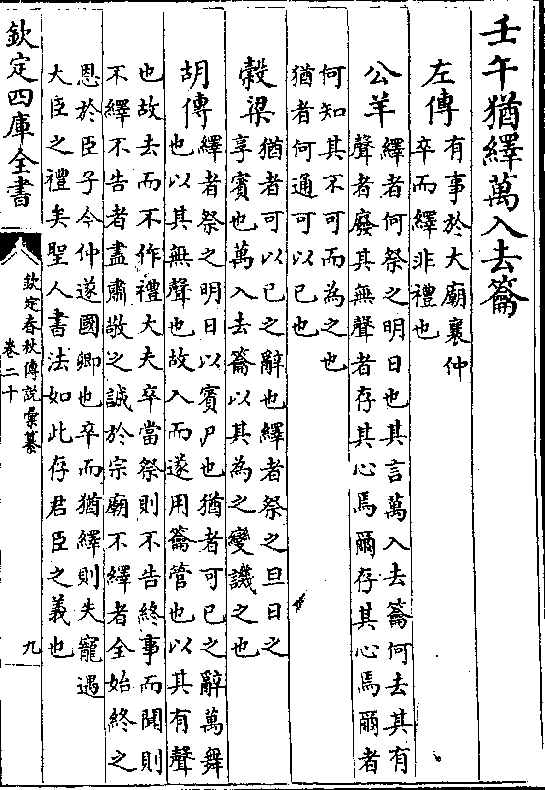 壬午猶繹萬入去籥
左傳
有事於大廟襄仲
卒而繹非禮也
公羊
繹者何祭之明日也其言萬入去籥何去其有
聲者廢其無聲者存其心焉爾存其心焉爾者
何知其不可而為之也
猶者何通可以已也
榖梁
猶者可以已之辭也繹者祭之旦日之
享賓也萬入去籥以其為之變譏之也
胡傳
繹者祭之明日以賓尸也猶者可已之辭萬舞
也以其無聲也故入而遂用籥管也以其有聲
也故去而不作禮大夫卒當祭則不告終事而聞則
不繹不告者盡肅敬之誠於宗廟不繹者全始終之
恩於臣子今仲遂國卿也卒而猶繹則失寵遇
大臣之禮矣聖人書法如此存君臣之義也
欽定四庫全書
欽定春秋傳說彙纂
卷二十
九